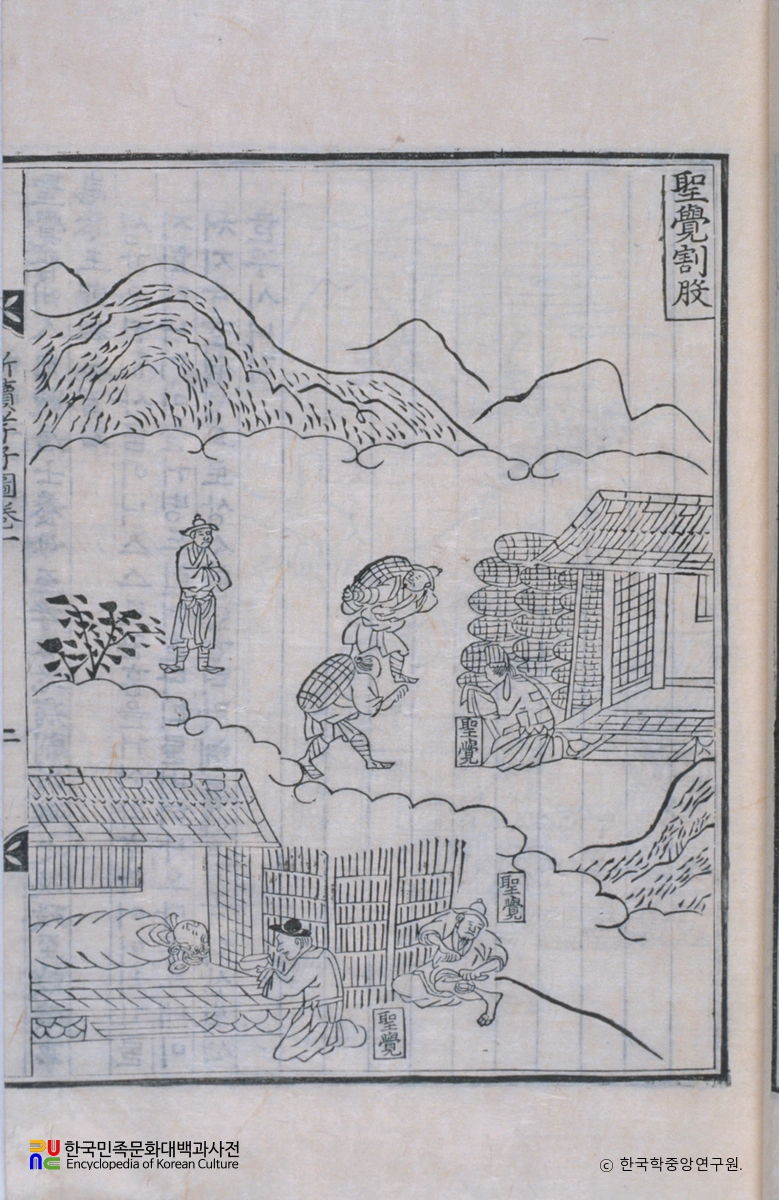 聖覺割股
聖覺
聖覺
聖覺
續孝子圖卷一
二
한국민족문화대백과사전
Encyclopedia of Korean Culture
ⓒ 한국학중앙연구원.